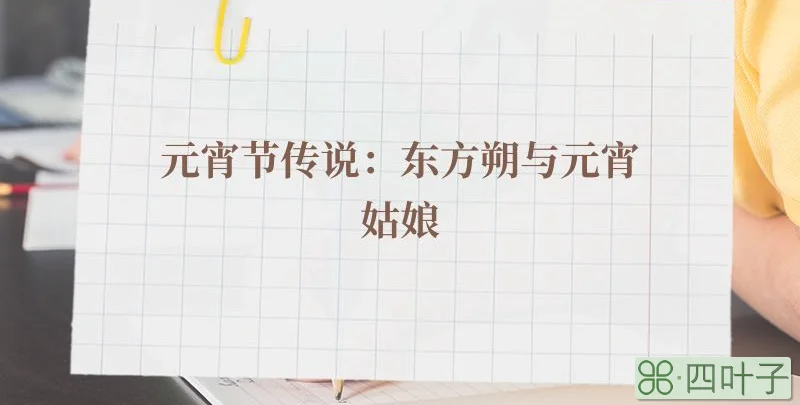 元宵节传说：东方朔与元宵
姑娘
四叶子